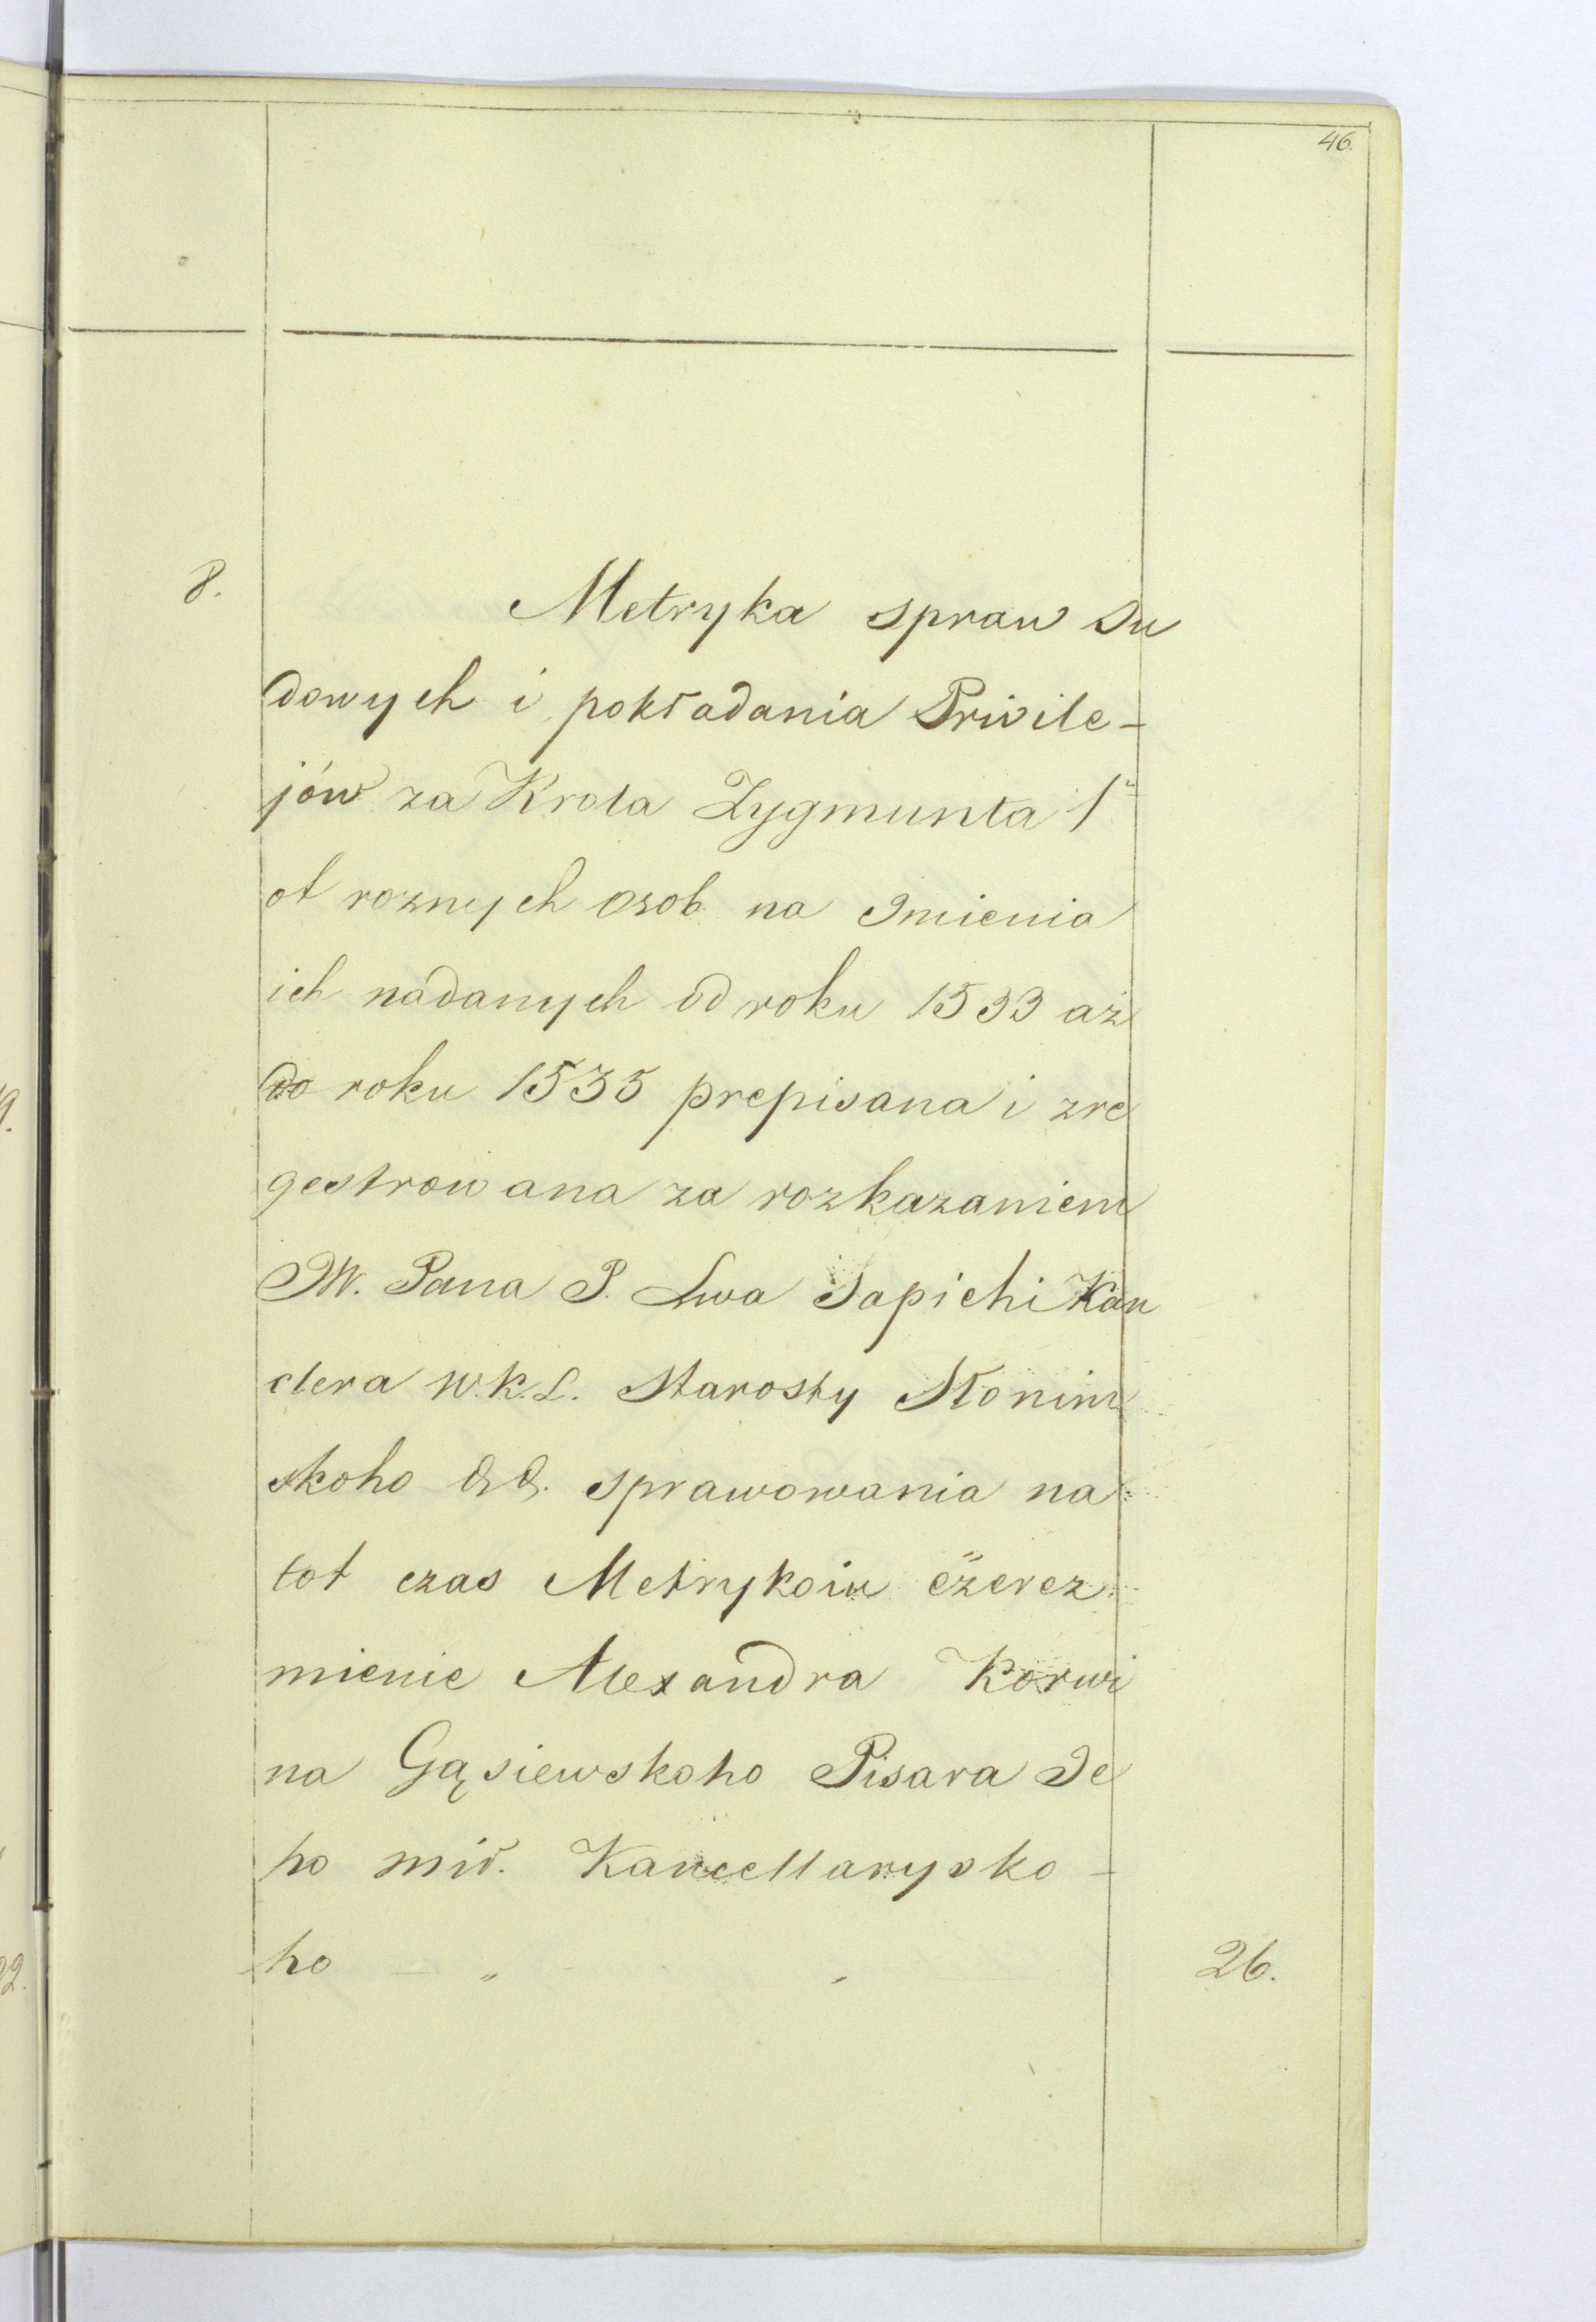 46.
8.
Metryka spraw Su
dowych i pokładania Privile-
jów za Krola Zygmunta 1º
ot roznych osob na Imienia
ich nadanych od roku 1533 aż
do roku 1535 prepisana i zre
gestrowana za rozkazaniem
W. Pana P. Lwa Sapiehi Kan
clera W.K.L. Starosty Słonim
skoho &&. sprawowania na
tot czas Metrykoiu czerez
mienie Alexandra Korwi
na Gąsiewskoho Pisara Je
ho mił. Kancellarysko-
ho
26.